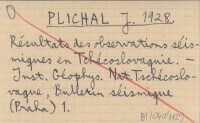 PLICHAL J. 1928.
Résultats des observations séis-
miques en Tchécoslovaquie. —
Inst. Géophys. Nat. Tschécoslo-
vaque, Bulletin séismique
(Praha) 1.